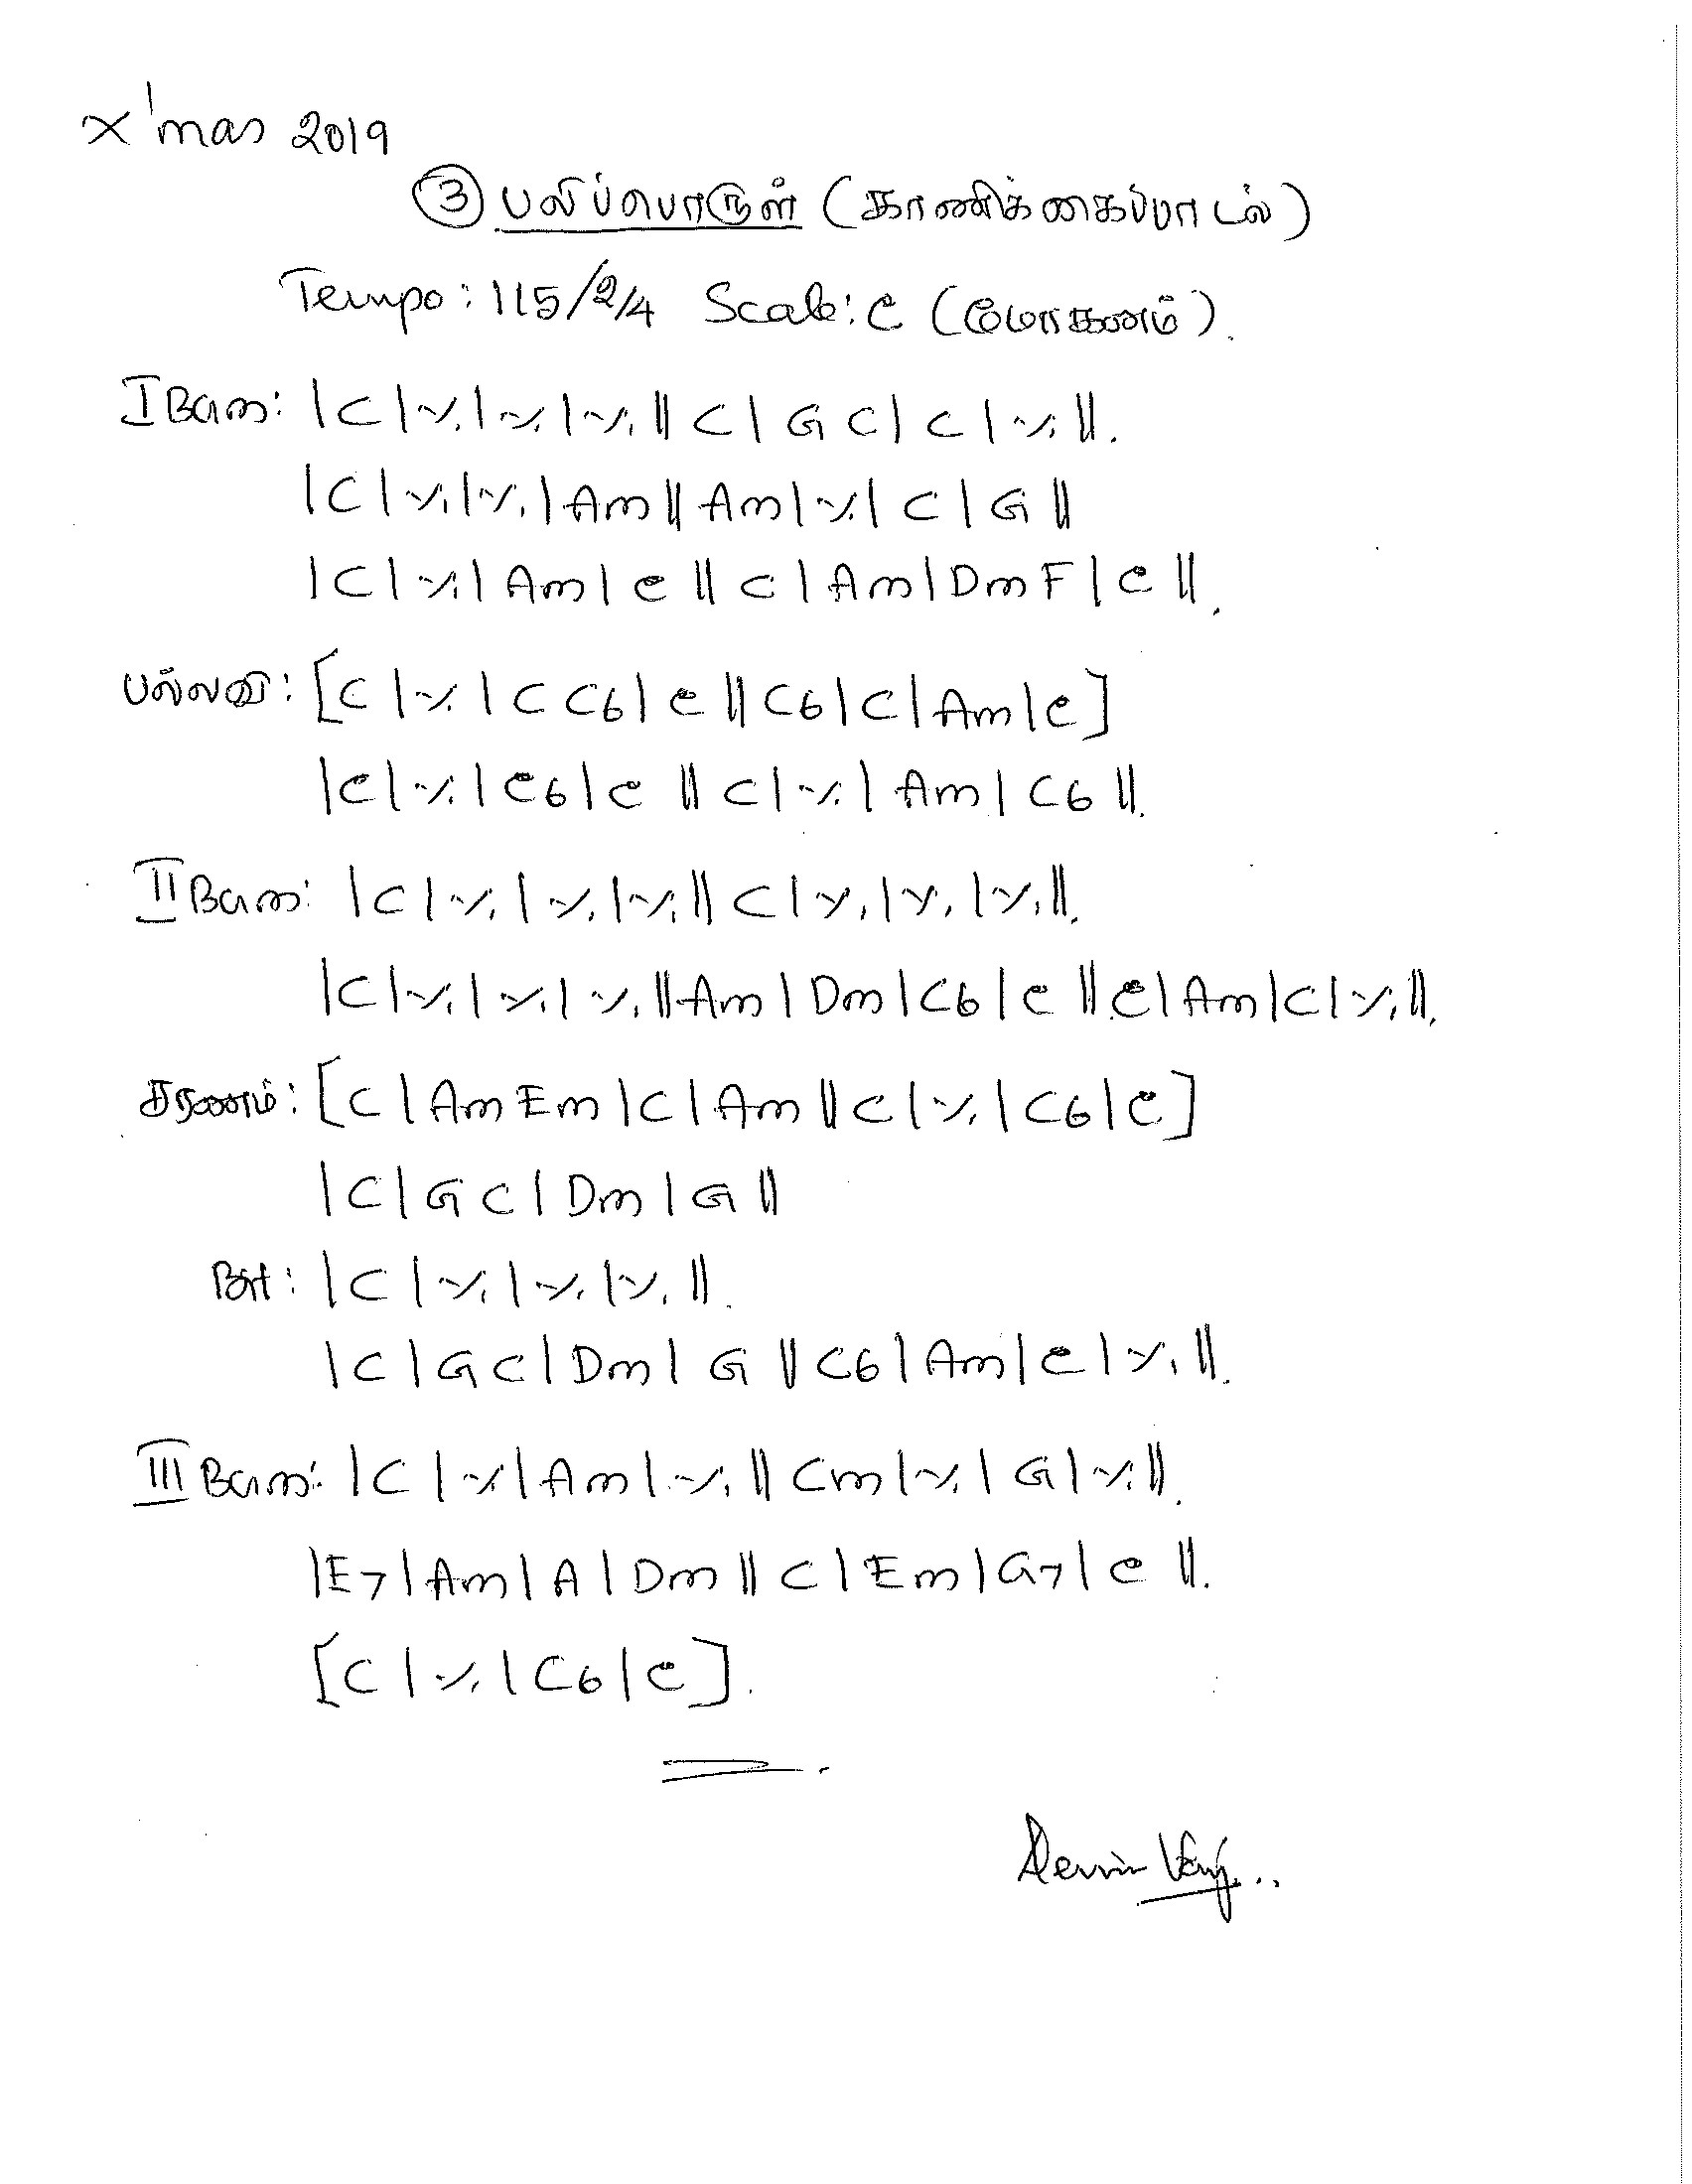 X'mas 2019
③ பலிப்பொருள் (காணிக்கைப்பாடல்)
Tempo: 115/2/4 Scale: C (மோகனம்).
I BGm: | C | ٪ | ٪ | ٪ || C | G C | C | ٪ ||.
| C | ٪ | ٪ | Am || Am | ٪ | C | G ||
| C | ٪ | Am | C || C | Am | Dm F | C ||.
பல்லவி: [C | ٪ | C C6 | C || C6 | C | Am | C]
| C | ٪ | C6 | C || C | ٪ | Am | C6 ||.
II BGm: | C | ٪ | ٪ | ٪ || C | ٪ | ٪ | ٪ ||.
| C | ٪ | ٪ | ٪ || Am | Dm | C6 | C || C | Am | C | ٪ ||.
சரணம்: [C | Am Em | C | Am || C | ٪ | C6 | C]
| C | G C | Dm | G ||
Bit: | C | ٪ | ٪ | ٪ ||.
| C | G C | Dm | G || C6 | Am | C | ٪ ||.
III BGm: | C | ٪ | Am | ٪ || Cm | ٪ | G | ٪ ||.
| E7 | Am | A | Dm || C | Em | G7 | C ||.
[C | ٪ | C6 | C].